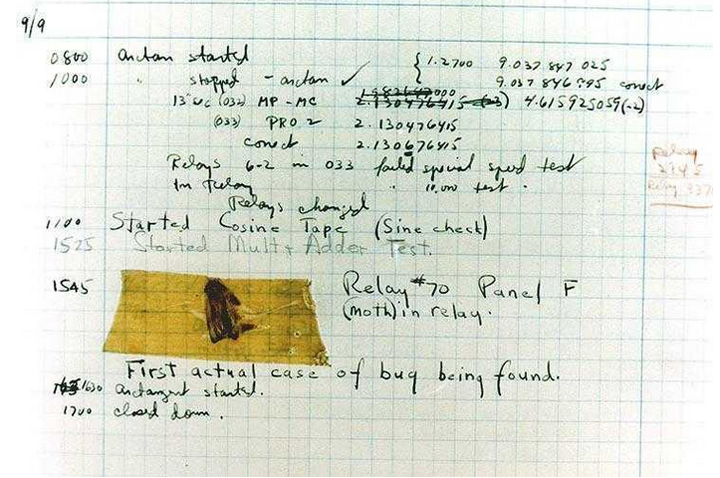 9/9
0800 arctan started { 1.2700 9.037 847 025
1000 " stopped - arctan ✓ 9.037 846 995 correct
13"uc (032) MP - MC 2.130476415 4.615925059(-2)
(033) PRO 2 2.130476415
correct 2.130676415
Relays 6-2 in 033 failed special speed test
In Relay " 10,000 test.
Relay
2145
Relay 3370
Relays changed
1100 Started Cosine Tape (Sine check)
1525 Started Mult+ Adder Test.
1545 Relay #70 Panel F
(moth) in relay.
First actual case of bug being found.
1630 arctangent started.
1700 closed down.